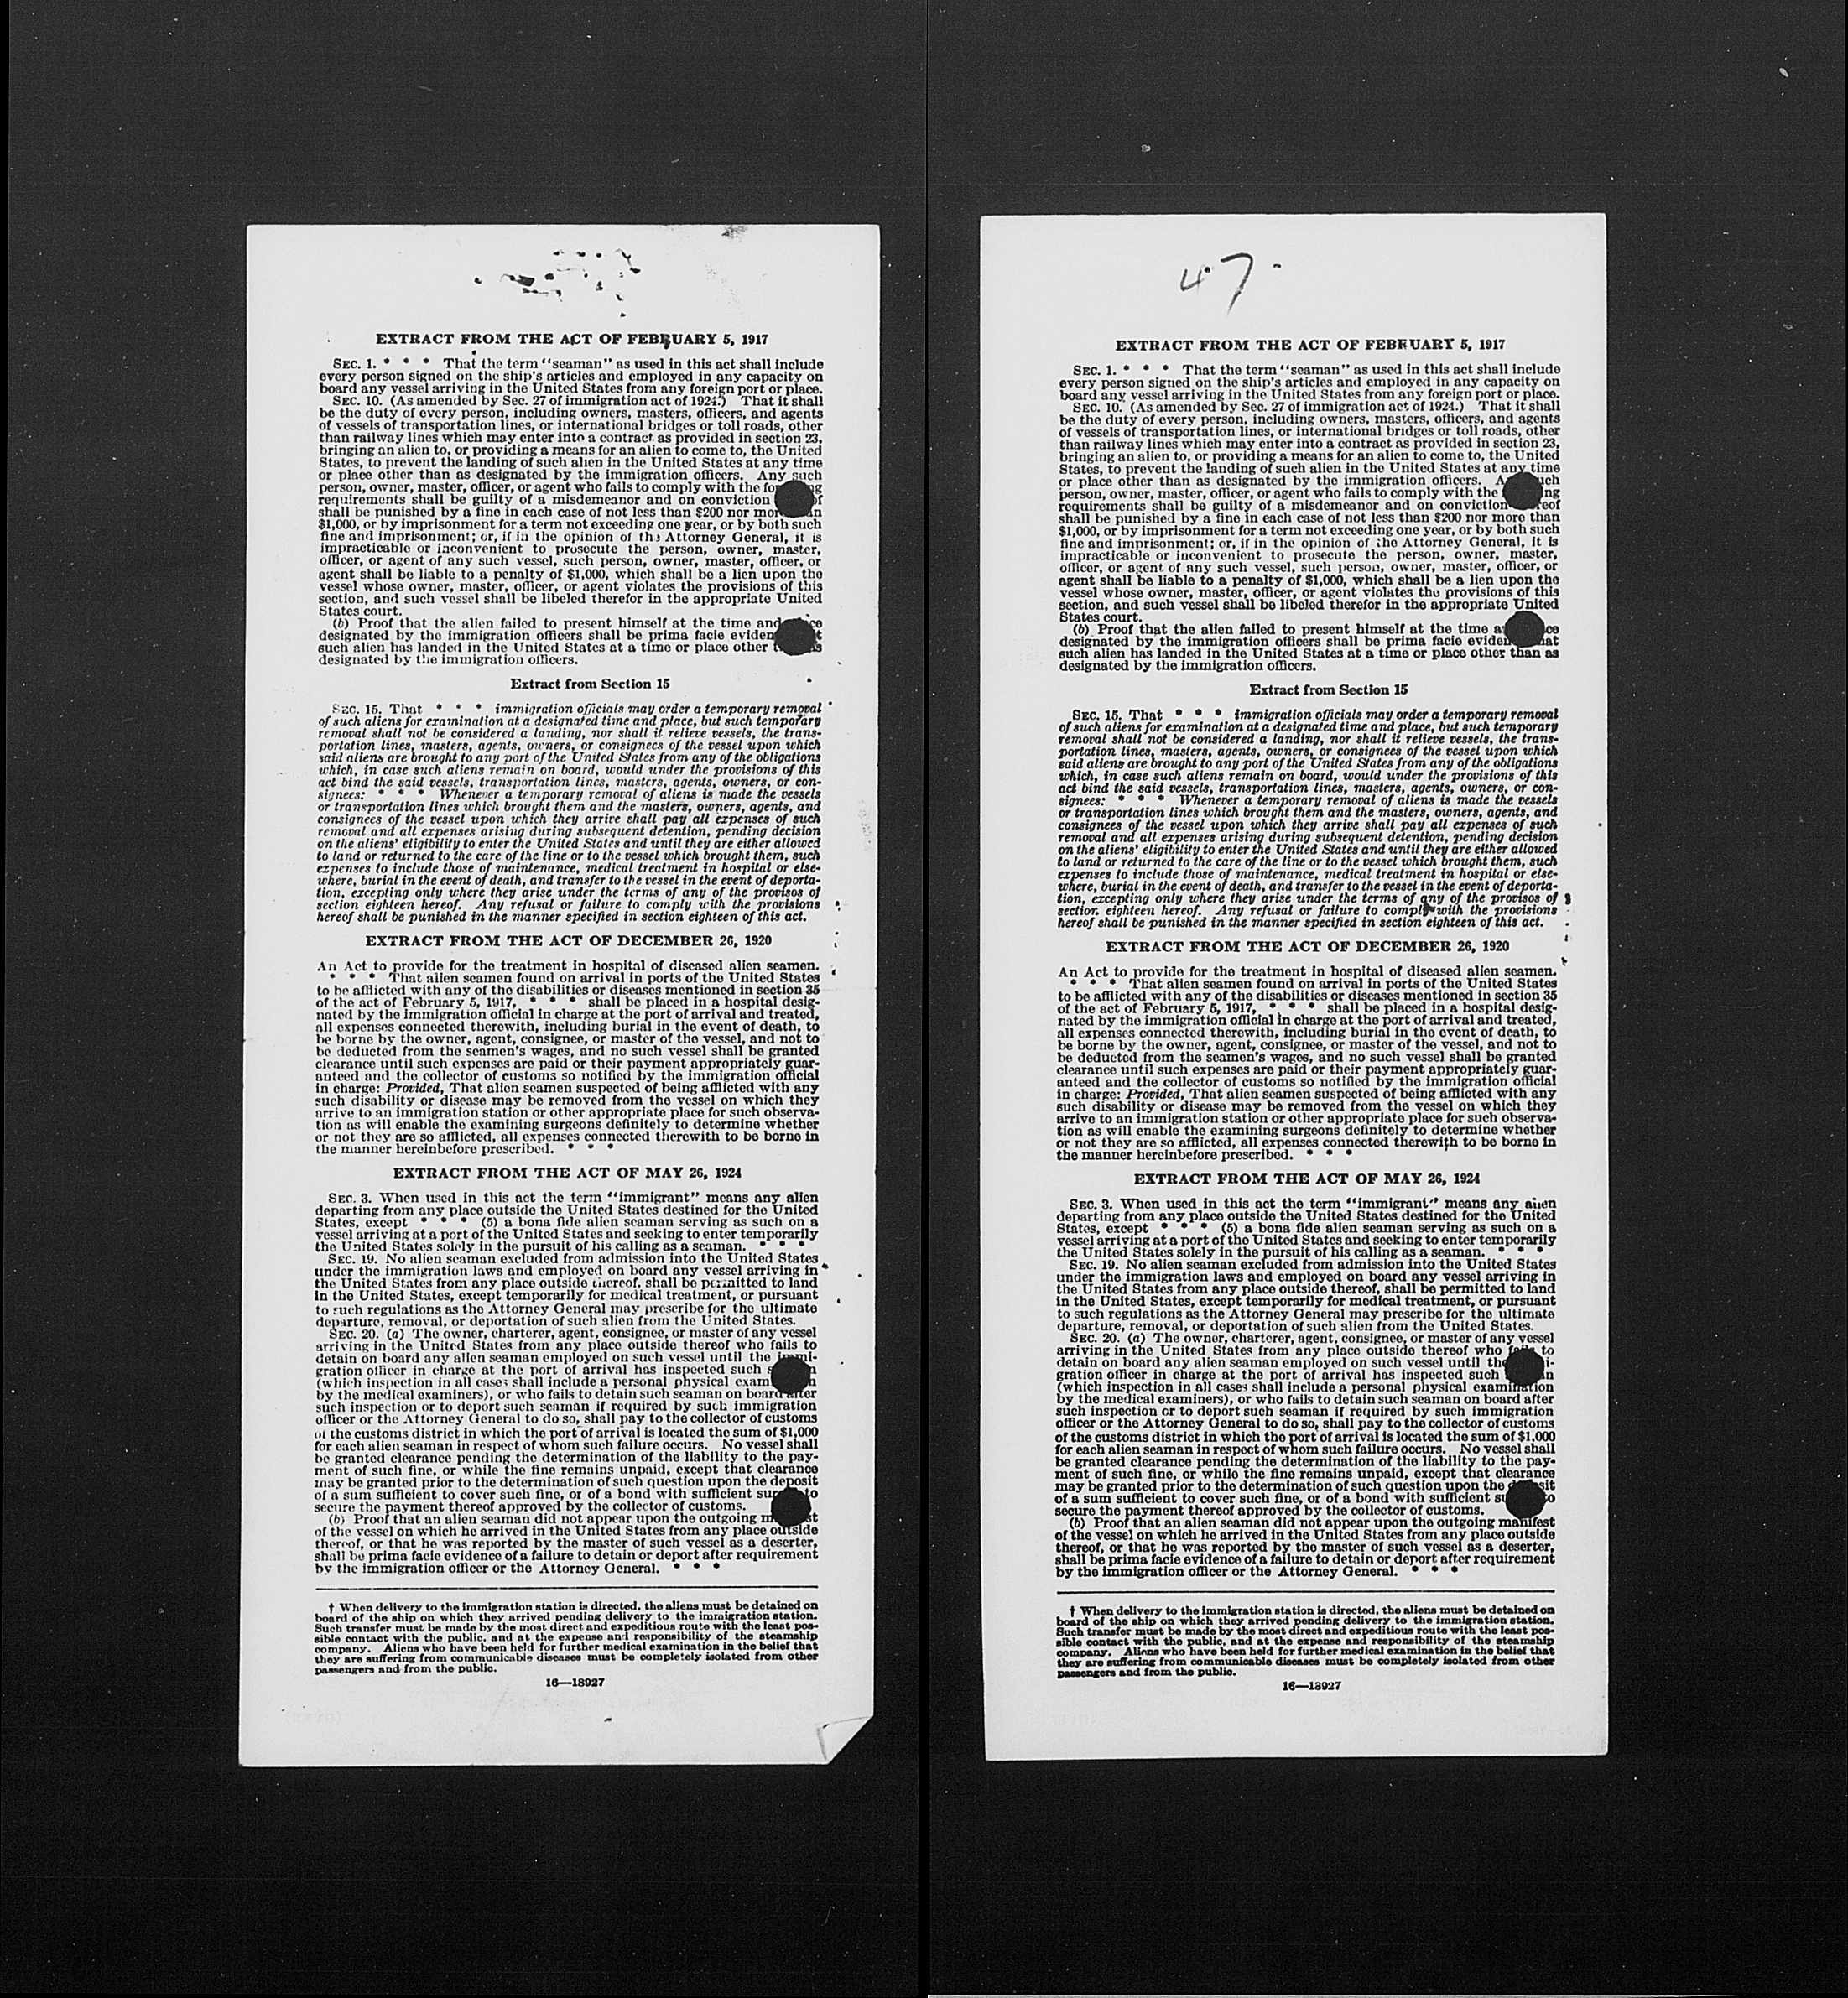 EXTRACT FROM THE ACT OF FEBRUARY 5, 1917
SEC. 1. * * * That the term "seaman" as used in this act shall include
every person signed on the ship's articles and employed in any capacity on
board any vessel arriving in the United States from any foreign port or place.
SEC. 10. (As amended by Sec. 27 of immigration act of 1924.) That it shall
be the duty of every person, including owners, masters, officers, and agents
of vessels of transportation lines, or international bridges or toll roads, other
than railway lines which may enter into a contract as provided in section 23,
bringing an alien to, or providing a means for an alien to come to, the United
States, to prevent the landing of such alien in the United States at any time
or place other than as designated by the immigration officers. Any such
person, owner, master, officer, or agent who fails to comply with the
requirements shall be guilty of a misdemeanor and on conviction
shall be punished by a fine in each case of not less than $200 nor
$1,000, or by imprisonment for a term not exceeding one year, or by both such
fine and imprisonment; or, if in the opinion of the Attorney General, it is
impracticable or inconvenient to prosecute the person, owner, master,
officer, or agent of any such vessel, such person, owner, master, officer, or
agent shall be liable to a penalty of $1,000, which shall be a lien upon the
vessel whose owner, master, officer, or agent violates the provisions of this
section, and such vessel shall be libeled therefor in the appropriate United
States court.
(b) Proof that the alien failed to present himself at the time and
designated by the immigration officers shall be prima facie
such alien has landed in the United States at a time or place other
designated by the immigration officers.
Extract from Section 15
SEC. 15. That * * * immigration officials may order a temporary removal
of such aliens for examination at a designated time and place, but such temporary
removal shall not be considered a landing, nor shall it relieve vessels, the trans-
portation lines, masters, agents, owners, or consignees of the vessel upon which
said aliens are brought to any port of the United States from any of the obligations
which, in case such aliens remain on board, would under the provisions of this
act bind the said vessels, transportation lines, masters, agents, owners, or con-
signees: * * * Whenever a temporary removal of aliens is made the vessels
or transportation lines which brought them and the masters, owners, agents, and
consignees of the vessel upon which they arrive shall pay all expenses of such
removal and all expenses arising during subsequent detention, pending decision
on the aliens' eligibility to enter the United States and until they are either allowed
to land or returned to the care of the line or to the vessel which brought them, such
expenses to include those of maintenance, medical treatment in hospital or else-
where, burial in the event of death, and transfer to the vessel in the event of deporta-
tion, excepting only where they arise under the terms of any of the provisos of
section eighteen hereof. Any refusal or failure to comply with the provisions
hereof shall be punished in the manner specified in section eighteen of this act.
EXTRACT FROM THE ACT OF DECEMBER 26, 1920
An Act to provide for the treatment in hospital of diseased alien seamen.
* * * That alien seamen found on arrival in ports of the United States
to be afflicted with any of the disabilities or diseases mentioned in section 35
of the act of February 5, 1917, * * * shall be placed in a hospital desig-
nated by the immigration official in charge at the port of arrival and treated,
all expenses connected therewith, including burial in the event of death, to
be borne by the owner, agent, consignee, or master of the vessel, and not to
be deducted from the seamen's wages, and no such vessel shall be granted
clearance until such expenses are paid or their payment appropriately guar-
anteed and the collector of customs so notified by the immigration official
in charge: Provided, That alien seamen suspected of being afflicted with any
such disability or disease may be removed from the vessel on which they
arrive to an immigration station or other appropriate place for such observa-
tion as will enable the examining surgeons definitely to determine whether
or not they are so afflicted, all expenses connected therewith to be borne in
the manner hereinbefore prescribed. * * *
EXTRACT FROM THE ACT OF MAY 26, 1924
SEC. 3. When used in this act the term "immigrant" means any alien
departing from any place outside the United States destined for the United
States, except * * * (5) a bona fide alien seaman serving as such on a
vessel arriving at a port of the United States and seeking to enter temporarily
the United States solely in the pursuit of his calling as a seaman. * * *
SEC. 19. No alien seaman excluded from admission into the United States
under the immigration laws and employed on board any vessel arriving in
the United States from any place outside thereof, shall be permitted to land
in the United States, except temporarily for medical treatment, or pursuant
to such regulations as the Attorney General may prescribe for the ultimate
departure, removal, or deportation of such alien from the United States.
SEC. 20. (a) The owner, charterer, agent, consignee, or master of any vessel
arriving in the United States from any place outside thereof who fails to
detain on board any alien seaman employed on such vessel until the immi-
gration officer in charge at the port of arrival has inspected such
(which inspection in all cases shall include a personal physical
by the medical examiners), or who fails to detain such seaman on board after
such inspection or to deport such seaman if required by such immigration
officer or the Attorney General to do so, shall pay to the collector of customs
of the customs district in which the port of arrival is located the sum of $1,000
for each alien seaman in respect of whom such failure occurs. No vessel shall
be granted clearance pending the determination of the liability to the pay-
ment of such fine, or while the fine remains unpaid, except that clearance
may be granted prior to the determination of such question upon the deposit
of a sum sufficient to cover such fine, or of a bond with sufficient to
secure the payment thereof approved by the collector of customs.
(b) Proof that an alien seaman did not appear upon the outgoing
of the vessel on which he arrived in the United States from any place outside
thereof, or that he was reported by the master of such vessel as a deserter,
shall be prima facie evidence of a failure to detain or deport after requirement
by the immigration officer or the Attorney General. * * *
† When delivery to the immigration station is directed, the aliens must be detained on
board of the ship on which they arrived pending delivery to the immigration station.
Such transfer must be made by the most direct and expeditious route with the least pos-
sible contact with the public, and at the expense and responsibility of the steamship
company. Aliens who have been held for further medical examination in the belief that
they are suffering from communicable diseases must be completely isolated from other
passengers and from the public.
16—18927
47
EXTRACT FROM THE ACT OF FEBRUARY 5, 1917
SEC. 1. * * * That the term "seaman" as used in this act shall include
every person signed on the ship's articles and employed in any capacity on
board any vessel arriving in the United States from any foreign port or place.
SEC. 10. (As amended by Sec. 27 of immigration act of 1924.) That it shall
be the duty of every person, including owners, masters, officers, and agents
of vessels of transportation lines, or international bridges or toll roads, other
than railway lines which may enter into a contract as provided in section 23,
bringing an alien to, or providing a means for an alien to come to, the United
States, to prevent the landing of such alien in the United States at any time
or place other than as designated by the immigration officers.
person, owner, master, officer, or agent who fails to comply with the
requirements shall be guilty of a misdemeanor and on conviction
shall be punished by a fine in each case of not less than $200 nor more than
$1,000, or by imprisonment for a term not exceeding one year, or by both such
fine and imprisonment; or, if in the opinion of the Attorney General, it is
impracticable or inconvenient to prosecute the person, owner, master,
officer, or agent of any such vessel, such person, owner, master, officer, or
agent shall be liable to a penalty of $1,000, which shall be a lien upon the
vessel whose owner, master, officer, or agent violates the provisions of this
section, and such vessel shall be libeled therefor in the appropriate United
States court.
(b) Proof that the alien failed to present himself at the time
designated by the immigration officers shall be prima facie
such alien has landed in the United States at a time or place other than as
designated by the immigration officers.
Extract from Section 15
SEC. 15. That * * * immigration officials may order a temporary removal
of such aliens for examination at a designated time and place, but such temporary
removal shall not be considered a landing, nor shall it relieve vessels, the trans-
portation lines, masters, agents, owners, or consignees of the vessel upon which
said aliens are brought to any port of the United States from any of the obligations
which, in case such aliens remain on board, would under the provisions of this
act bind the said vessels, transportation lines, masters, agents, owners, or con-
signees: * * * Whenever a temporary removal of aliens is made the vessels
or transportation lines which brought them and the masters, owners, agents, and
consignees of the vessel upon which they arrive shall pay all expenses of such
removal and all expenses arising during subsequent detention, pending decision
on the aliens' eligibility to enter the United States and until they are either allowed
to land or returned to the care of the line or to the vessel which brought them, such
expenses to include those of maintenance, medical treatment in hospital or else-
where, burial in the event of death, and transfer to the vessel in the event of deporta-
tion, excepting only where they arise under the terms of any of the provisos of
section eighteen hereof. Any refusal or failure to comply with the provisions
hereof shall be punished in the manner specified in section eighteen of this act.
EXTRACT FROM THE ACT OF DECEMBER 26, 1920
An Act to provide for the treatment in hospital of diseased alien seamen.
* * * That alien seamen found on arrival in ports of the United States
to be afflicted with any of the disabilities or diseases mentioned in section 35
of the act of February 5, 1917, * * * shall be placed in a hospital desig-
nated by the immigration official in charge at the port of arrival and treated,
all expenses connected therewith, including burial in the event of death, to
be borne by the owner, agent, consignee, or master of the vessel, and not to
be deducted from the seamen's wages, and no such vessel shall be granted
clearance until such expenses are paid or their payment appropriately guar-
anteed and the collector of customs so notified by the immigration official
in charge: Provided, That alien seamen suspected of being afflicted with any
such disability or disease may be removed from the vessel on which they
arrive to an immigration station or other appropriate place for such observa-
tion as will enable the examining surgeons definitely to determine whether
or not they are so afflicted, all expenses connected therewith to be borne in
the manner hereinbefore prescribed. * * *
EXTRACT FROM THE ACT OF MAY 26, 1924
SEC. 3. When used in this act the term "immigrant" means any alien
departing from any place outside the United States destined for the United
States, except * * * (5) a bona fide alien seaman serving as such on a
vessel arriving at a port of the United States and seeking to enter temporarily
the United States solely in the pursuit of his calling as a seaman. * * *
SEC. 19. No alien seaman excluded from admission into the United States
under the immigration laws and employed on board any vessel arriving in
the United States from any place outside thereof, shall be permitted to land
in the United States, except temporarily for medical treatment, or pursuant
to such regulations as the Attorney General may prescribe for the ultimate
departure, removal, or deportation of such alien from the United States.
SEC. 20. (a) The owner, charterer, agent, consignee, or master of any vessel
arriving in the United States from any place outside thereof who fails to
detain on board any alien seaman employed on such vessel until
gration officer in charge at the port of arrival has inspected such
(which inspection in all cases shall include a personal physical examination
by the medical examiners), or who fails to detain such seaman on board after
such inspection or to deport such seaman if required by such immigration
officer or the Attorney General to do so, shall pay to the collector of customs
of the customs district in which the port of arrival is located the sum of $1,000
for each alien seaman in respect of whom such failure occurs. No vessel shall
be granted clearance pending the determination of the liability to the pay-
ment of such fine, or while the fine remains unpaid, except that clearance
may be granted prior to the determination of such question upon the
of a sum sufficient to cover such fine, or of a bond with sufficient
secure the payment thereof approved by the collector of customs.
(b) Proof that an alien seaman did not appear upon the outgoing manifest
of the vessel on which he arrived in the United States from any place outside
thereof, or that he was reported by the master of such vessel as a deserter,
shall be prima facie evidence of a failure to detain or deport after requirement
by the immigration officer or the Attorney General. * * *
† When delivery to the immigration station is directed, the aliens must be detained on
board of the ship on which they arrived pending delivery to the immigration station.
Such transfer must be made by the most direct and expeditious route with the least pos-
sible contact with the public, and at the expense and responsibility of the steamship
company. Aliens who have been held for further medical examination in the belief that
they are suffering from communicable diseases must be completely isolated from other
passengers and from the public.
16—18927